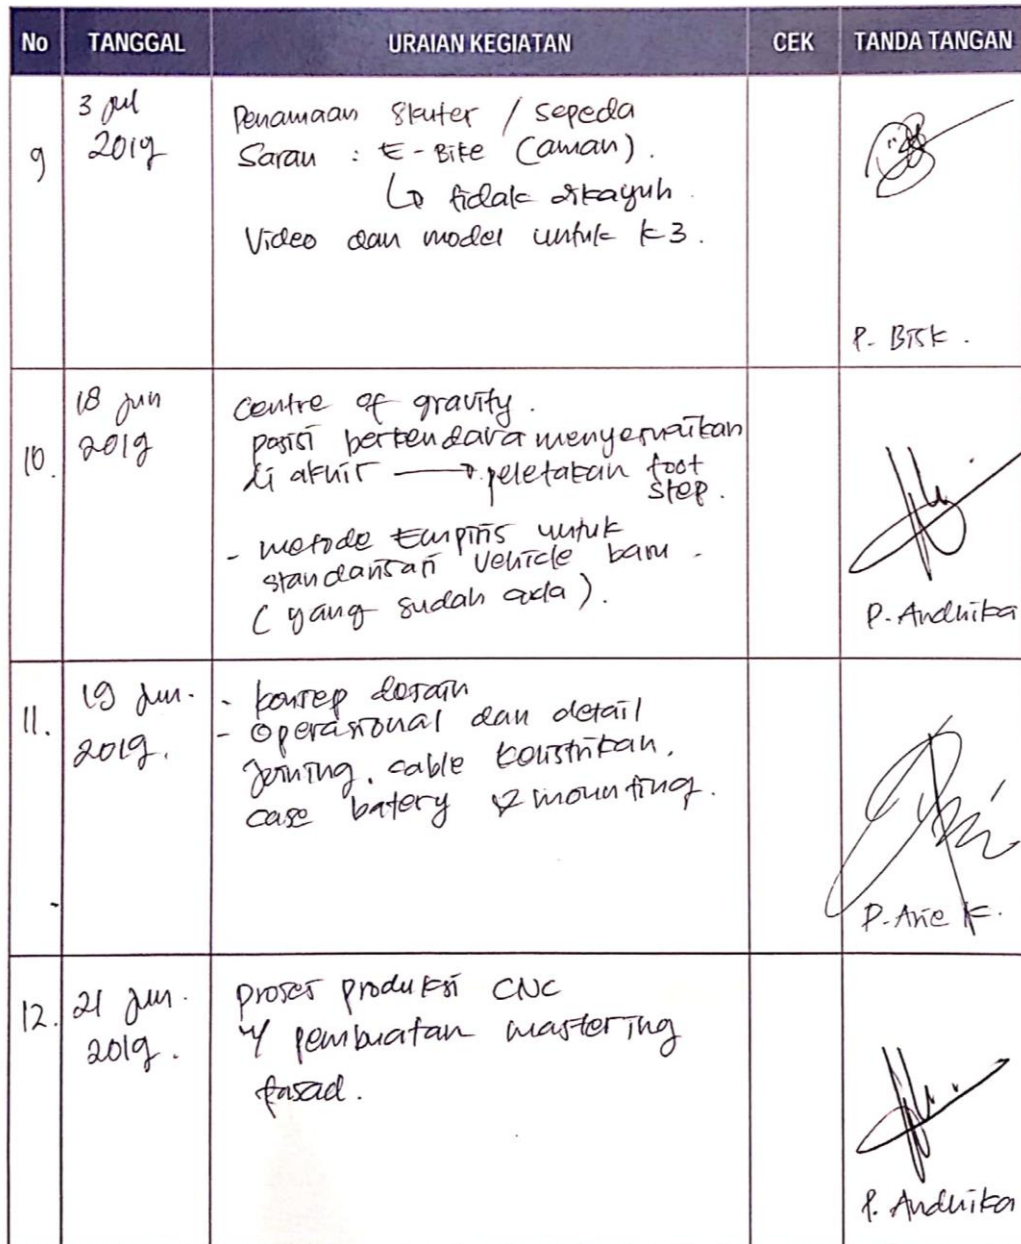 No TANGGAL URAIAN KEGIATAN CEK TANDA TANGAN
9
3 Jul
2019
Penamaan Skuter / sepeda
Saran : E-Bike (aman).
↳ tidak dikayuh.
Video dan model untuk K3.
P. BTSK.
10.
18 Jun
2019
Centre of gravity.
posisi berkendara menyesuaikan
di akhir → peletakan foot
step.
- metode Empiris untuk
standarisasi vehicle baru -
(yang sudah ada).
P. Andhika
11.
19 Jun.
2019.
- konsep desain
- Operasional dan detail
Joining, cable
case batery & mounting.
P. Arie K.
12.
21 Jun.
2019.
Proses produksi CNC
pembuatan mastering
fasad.
P. Andhika